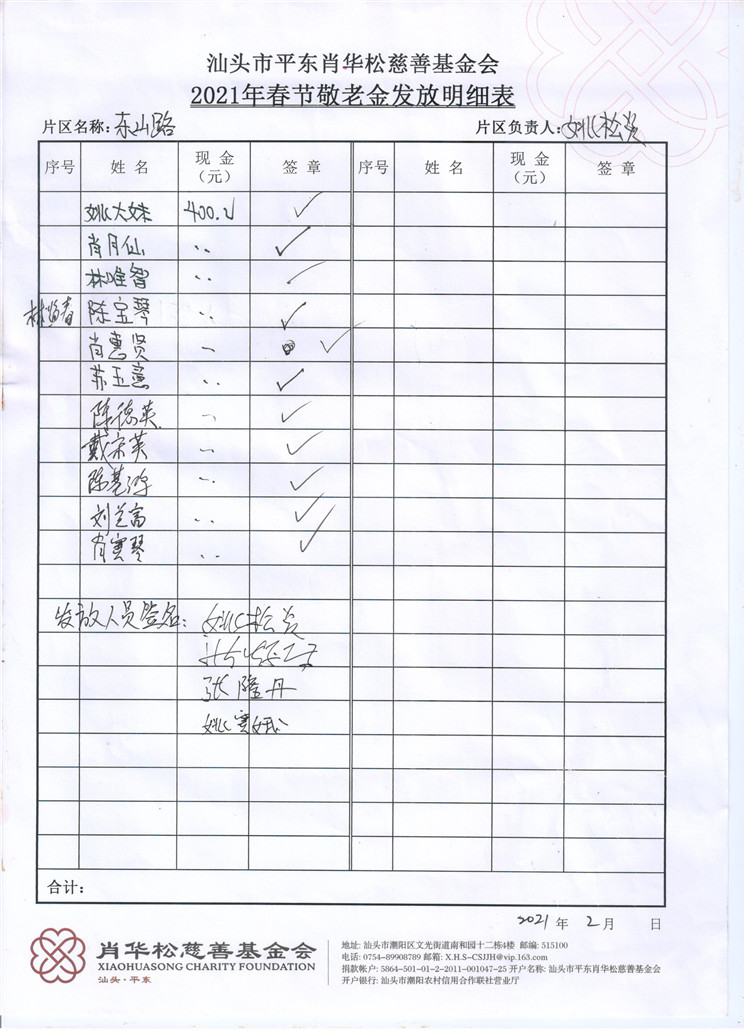 汕头市平东肖华松慈善基金会
2021年春节敬老金发放明细表
片区名称:东山路 片区负责人:姚松炎
序号 姓名 现金(元) 签章 序号 姓名 现金(元) 签章
姚大妹 400.
肖月仙 ..
林唯智 ..
陈宝琴 ..
肖惠贤
苏玉 ..
陈德英
戴宋英
陈基
刘兰高 ..
肖宝琴 ..
发放人员签名: 姚松炎
张隆丹
姚宝娥
合计:
2021年 2月 日
肖华松慈善基金会
XIAOHUASONG CHARITY FOUNDATION
汕头·平东
地址: 汕头市潮阳区文光街道南和园十二栋4楼 邮编: 515100
电话: 0754-89908789 邮箱: X.H.S-CSJJH@vip.163.com
捐款帐户: 5864-501-01-2-2011-001047-25 开户名称: 汕头市平东肖华松慈善基金会
开户银行: 汕头市潮阳农村信用合作联社营业厅